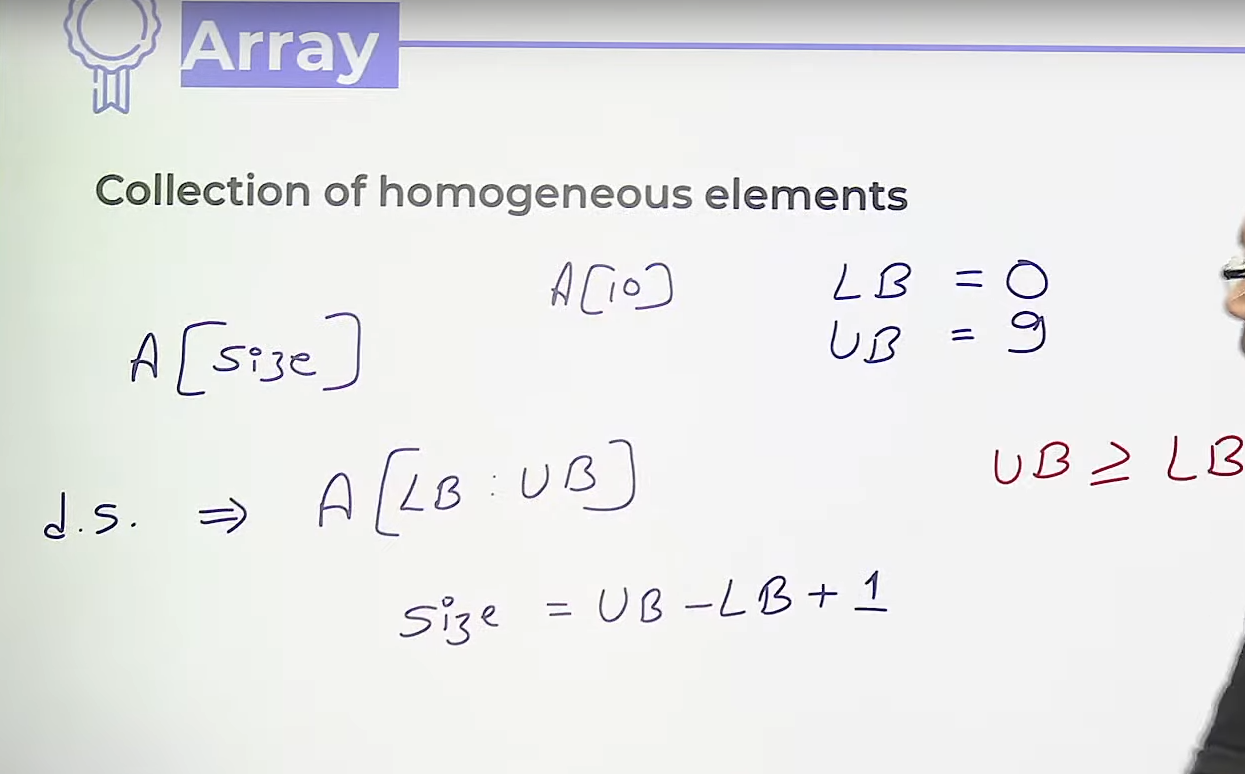 Array
Collection of homogeneous elements
A[10]
LB = 0
UB = 9
A[size]
UB ≥ LB
d.s. ⇒ A[LB : UB]
size = UB - LB + 1